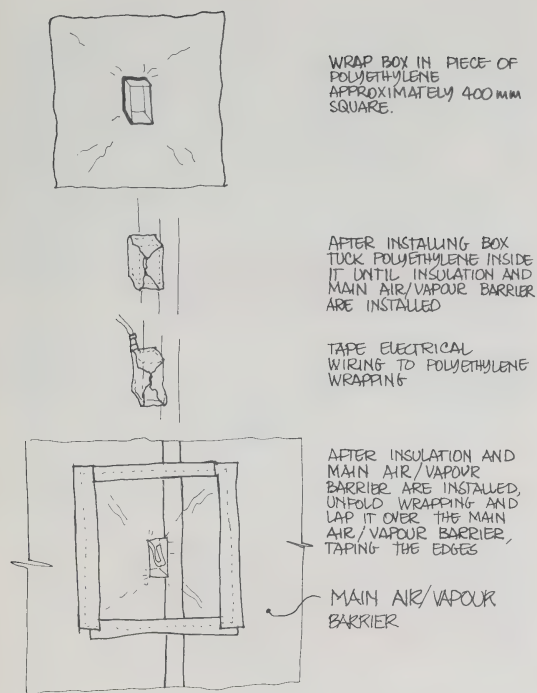 WRAP BOX IN PIECE OF
POLYETHYLENE
APPROXIMATELY 400 mm
SQUARE.
AFTER INSTALLING BOX
TUCK POLYETHYLENE INSIDE
IT UNTIL INSULATION AND
MAIN AIR/VAPOUR BARRIER
ARE INSTALLED
TAPE ELECTRICAL
WIRING TO POLYETHYLENE
WRAPPING
AFTER INSULATION AND
MAIN AIR/VAPOUR
BARRIER ARE INSTALLED,
UNFOLD WRAPPING AND
LAP IT OVER THE MAIN
AIR/VAPOUR BARRIER,
TAPING THE EDGES
MAIN AIR/VAPOUR
BARRIER